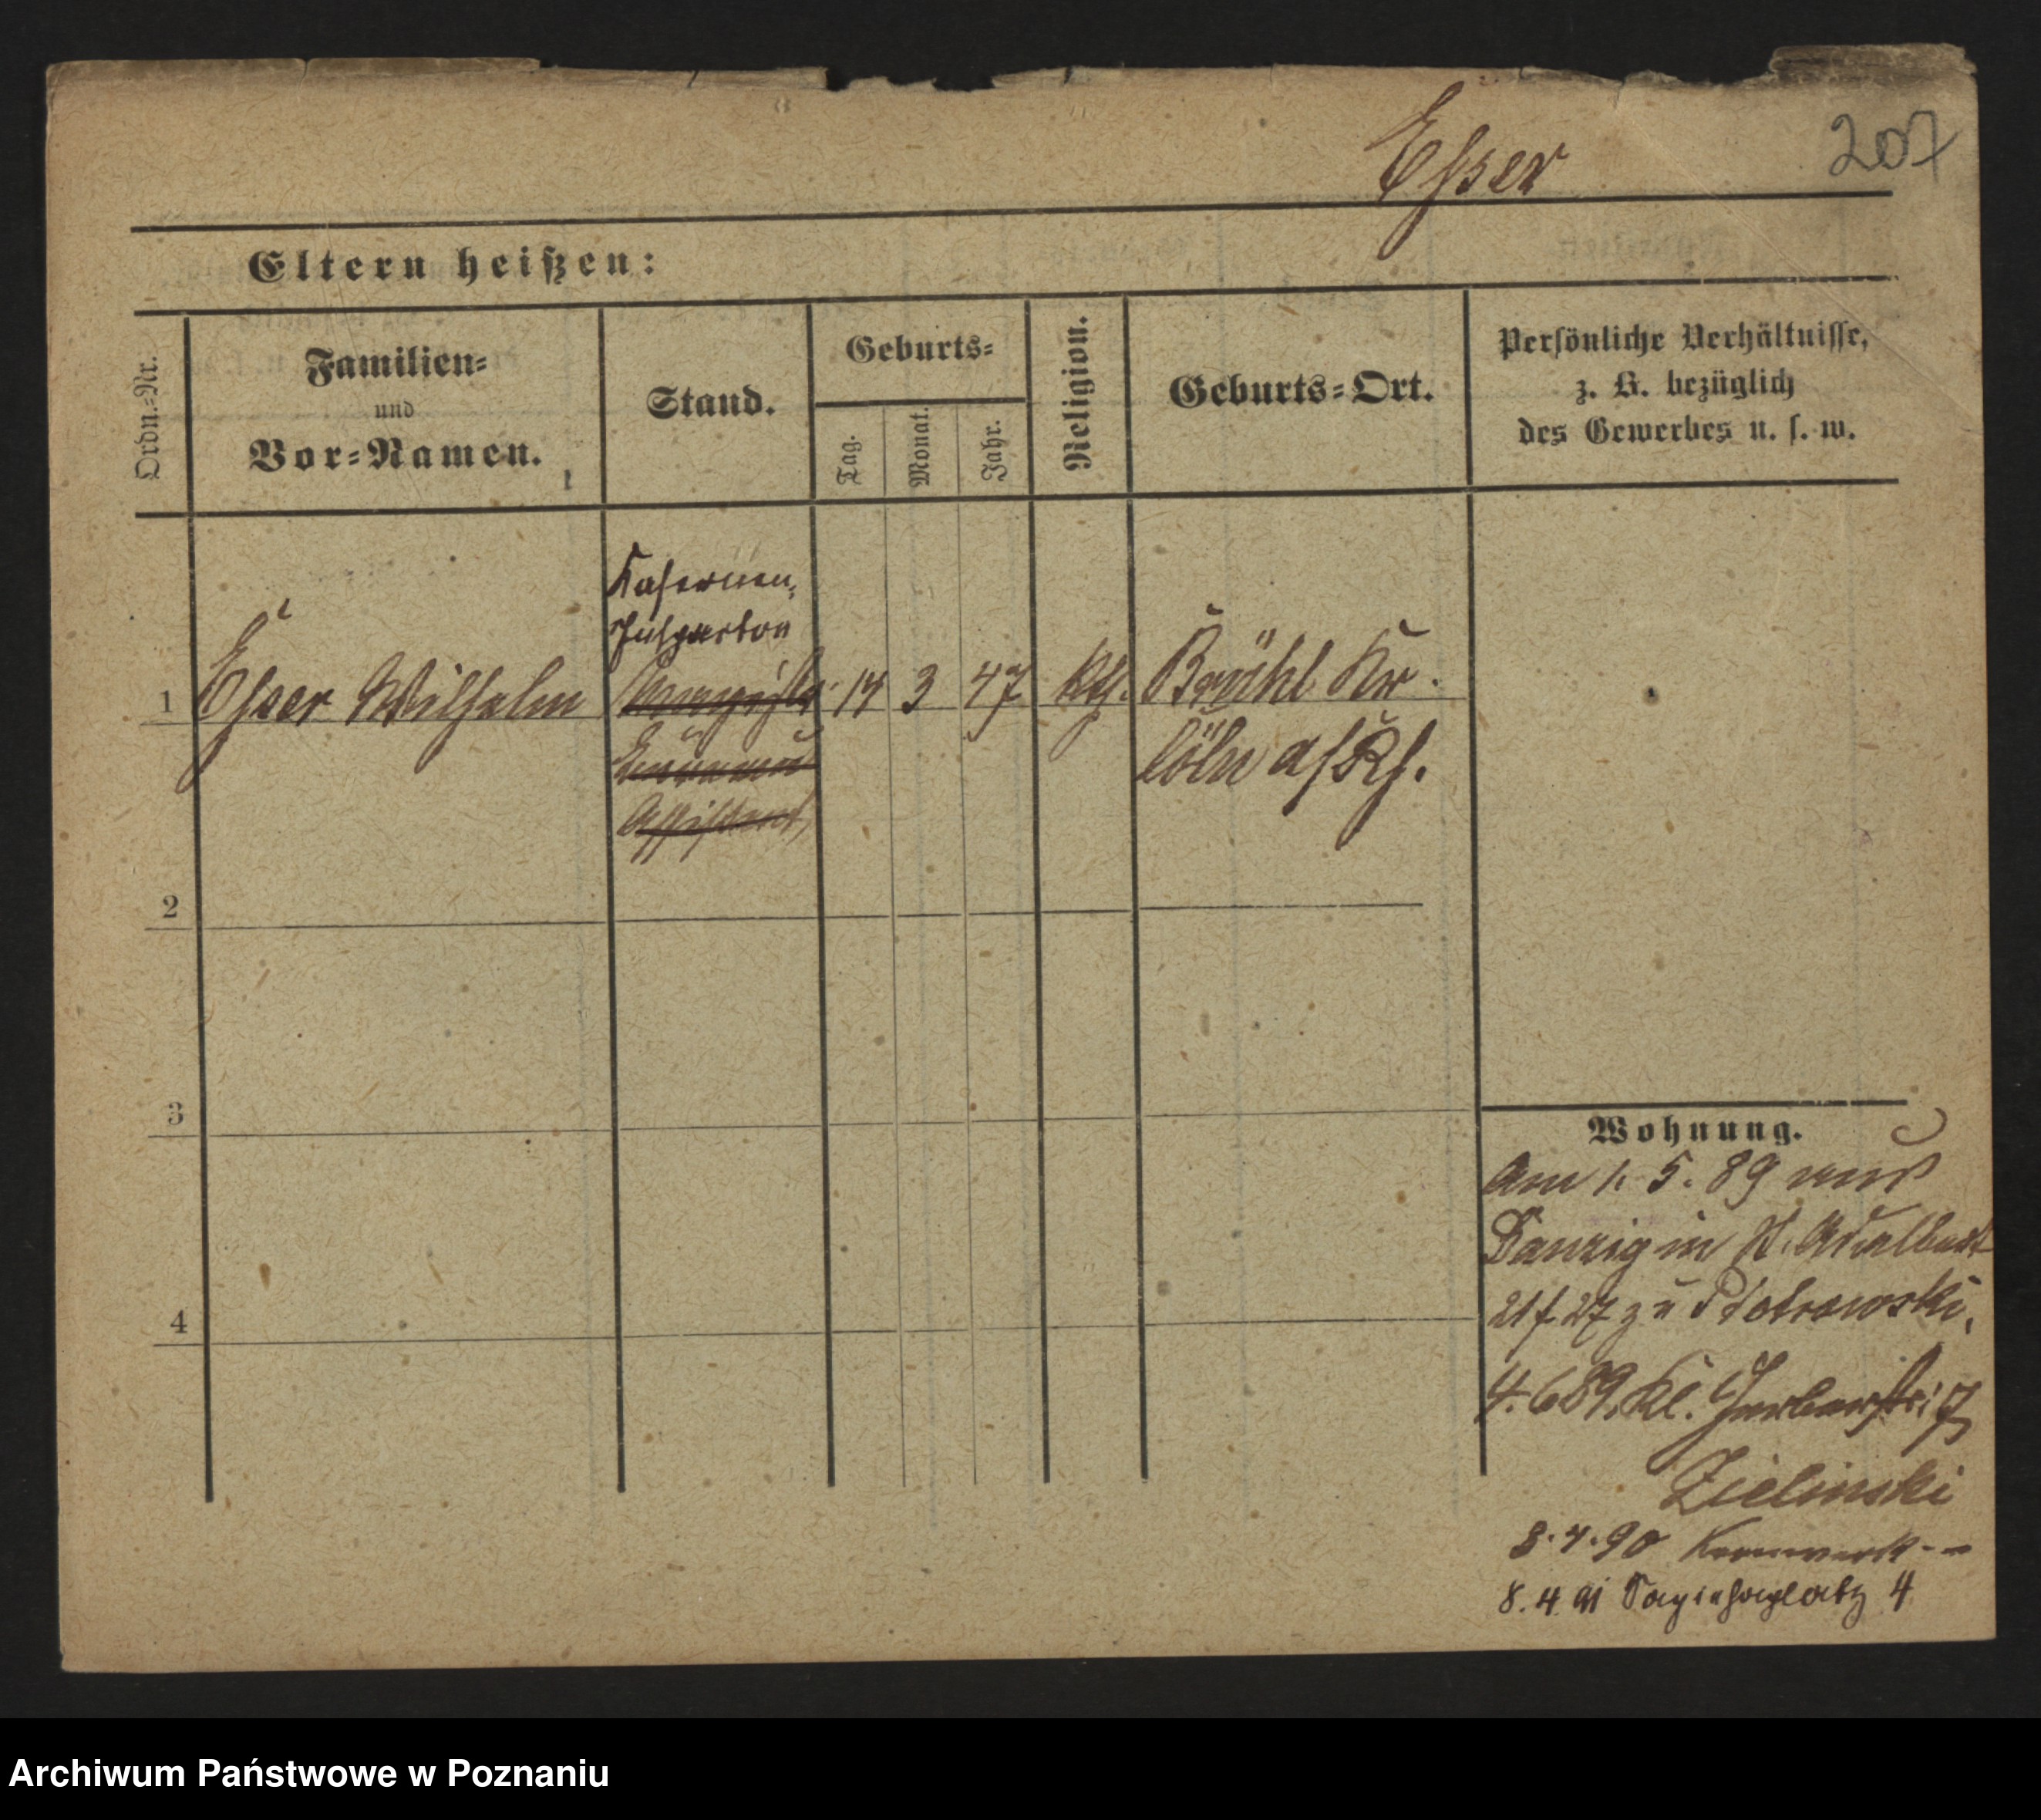 Esser
207
Eltern heißen:
Ordn.-Nr.
Familien-
und
Vor-Namen.
Stand.
Geburts-
Tag.
Monat.
Jahr.
Religion.
Geburts-Ort.
Persönliche Verhältnisse,
z. B. bezüglich
des Gewerbes u. s. w.
Kasernen-
Inspector
1 Esser Wilhelm 14 3 47 kth. Brühl Kr.
Cöln a/Rh.
Assistent
2
3
4
Wohnung.
Am 1. 5. 89 aus
Danzig in St. Adalbert
27 zu Piotrowski.
4. 6 89. Kl. Gerberstr. 7
Zielinski
3. 4. 90 Kernwerk
8. 4 91 4
Archiwum Państwowe w Poznaniu